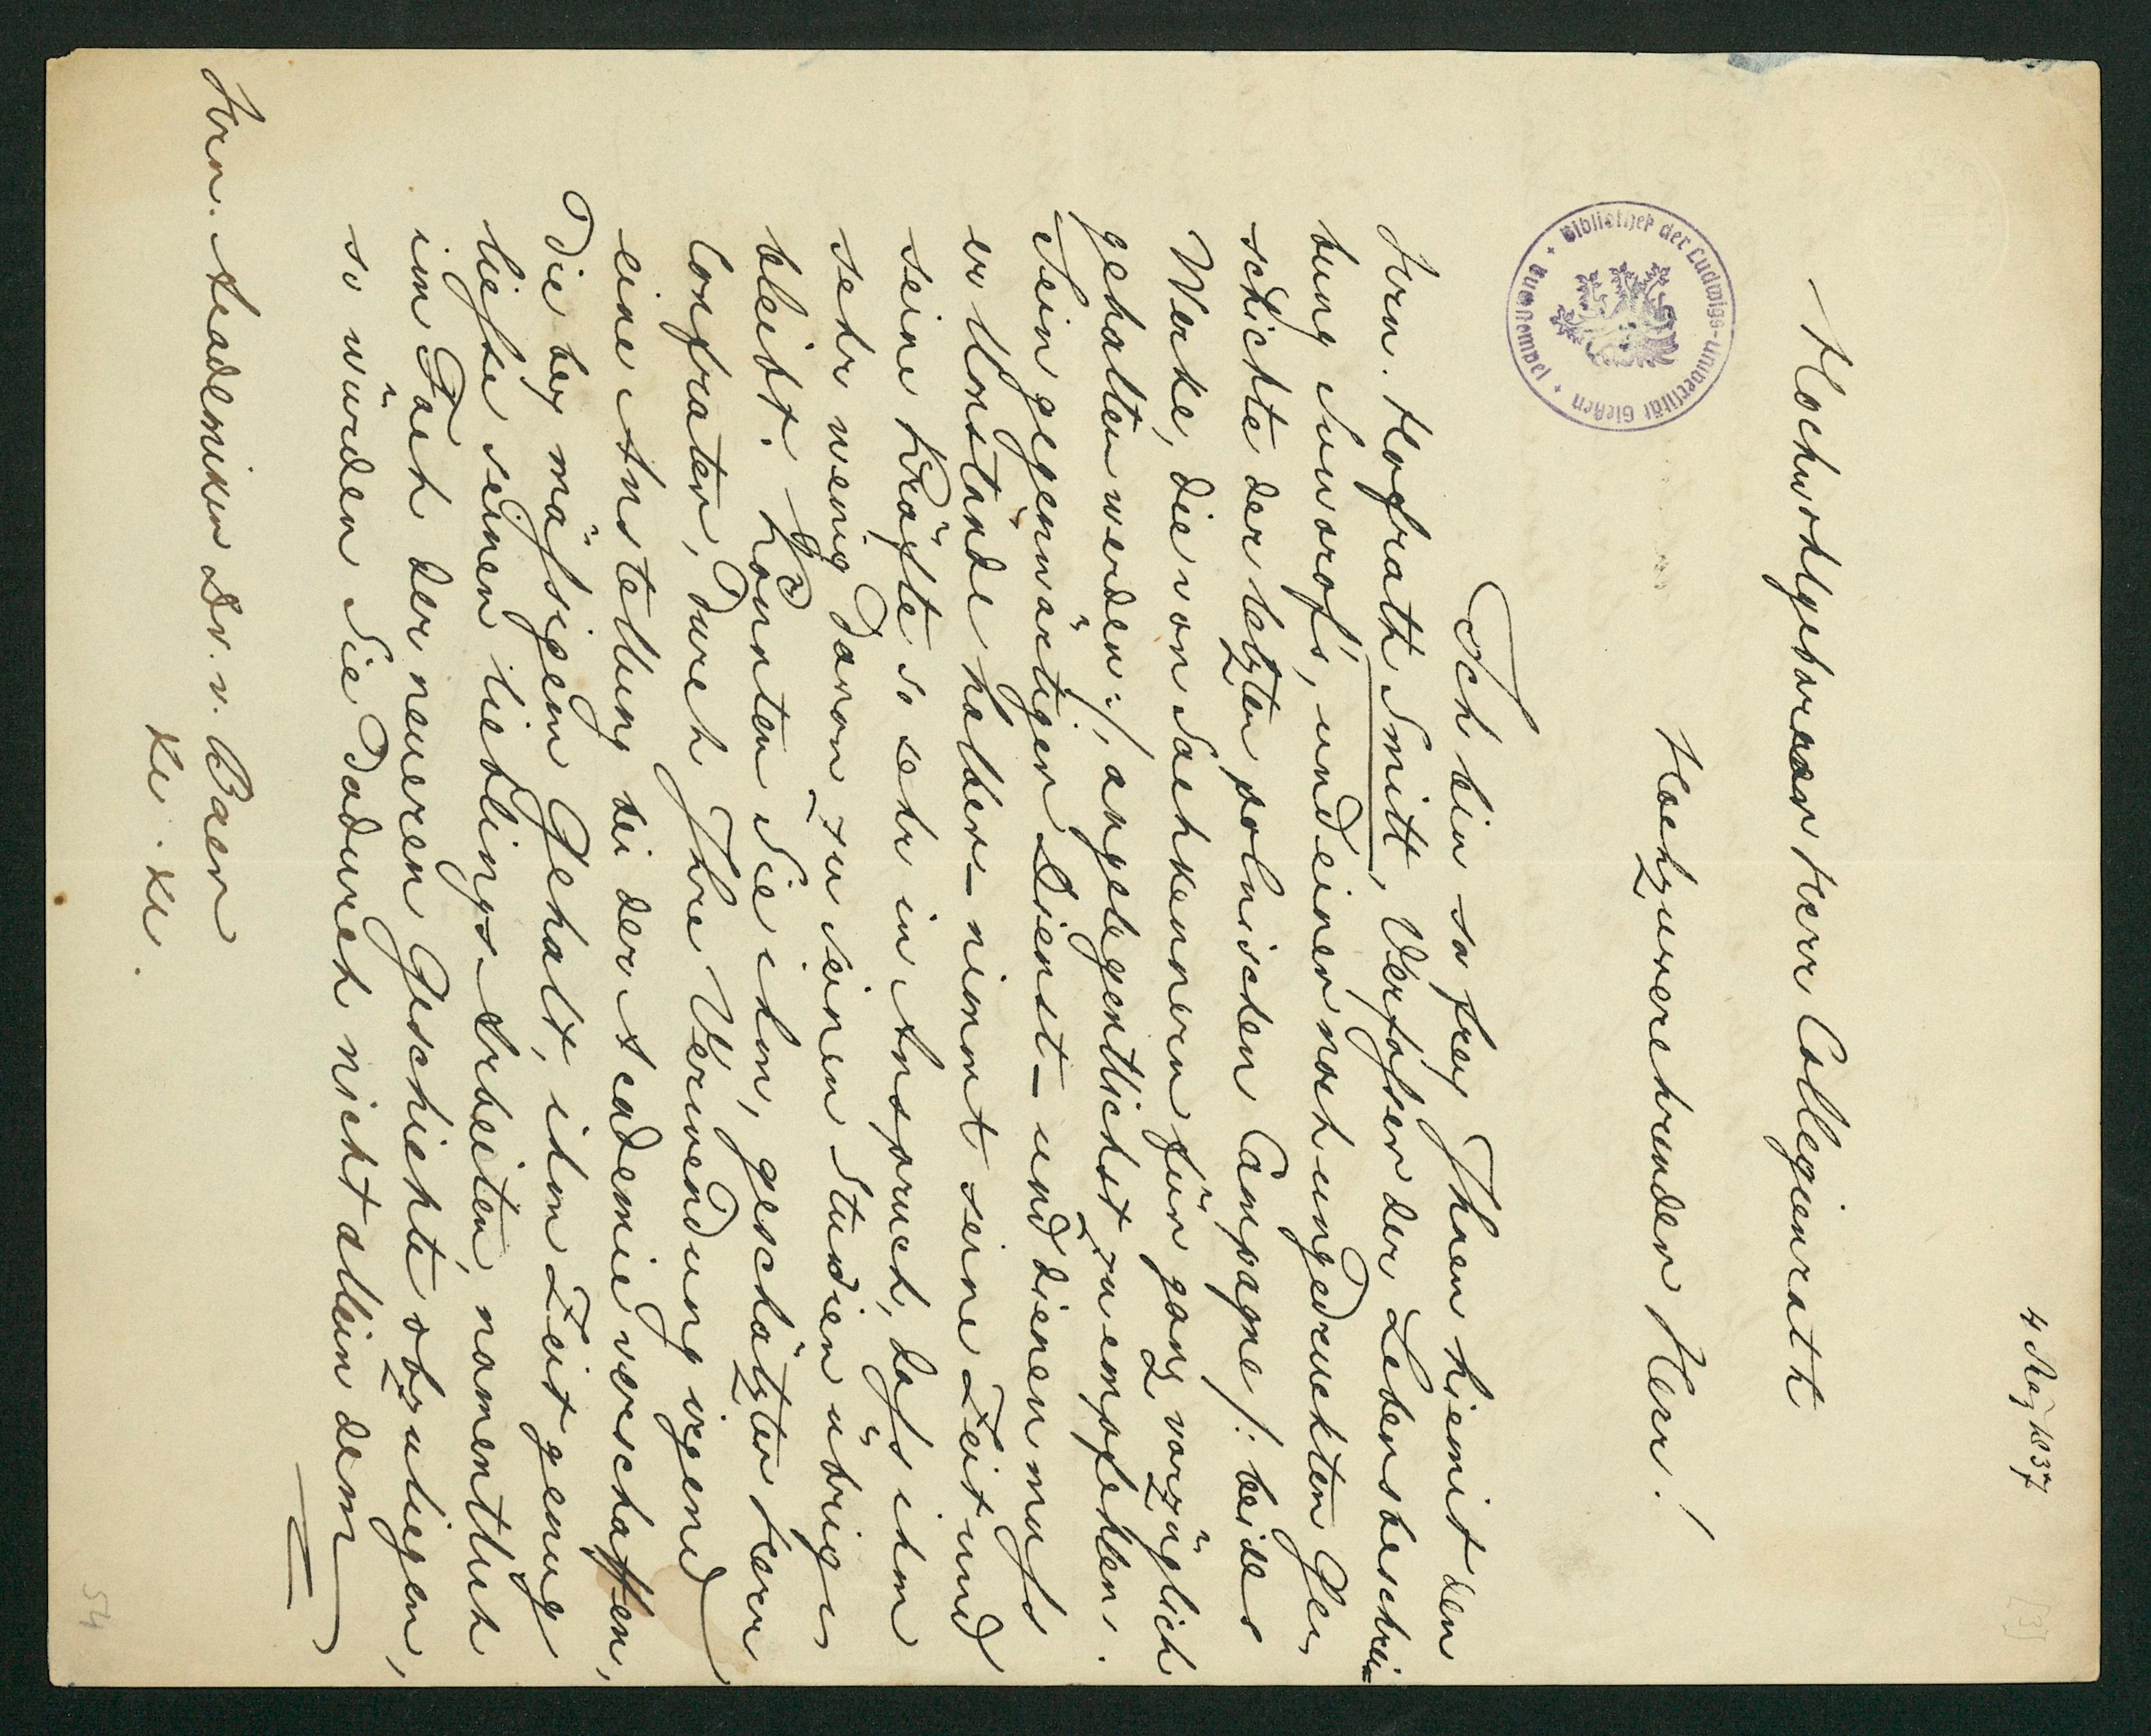 4 May 1837
[3]
Hochwohlgeborener Herr Collegienrath
Hochzuverehrender Herr!
Bibliothek der Ludwigs-Universität Gießen
Ich bin so frey Ihnen hiemit den
Hrn. Hofrath Smitt, Verfasser der Lebensbeschrei=
bung Suworofs, und einer noch ungedruckten Ge-
schichte der letzten polnischen Campagne /: beides
Werke, die von Sachkennern für ganz vorzüglich
gehalten werden :/, angelegentlichst zu empfehlen.
Sein gegenwärtiger Dienst – und dienen muß
er Umstände halber – nimmt seine Zeit und
seine Kräfte so sehr in Anspruch, daß ihm
sehr wenig davon zu seinen Studien übrig
bleibt. Könnten Sie ihm, geschätzter Herr
Confrater, durch Ihre Verwendung irgend
eine Anstellung bei der Academie verschaffen,
die bey mäßigem Gehalt, ihm Zeit genug
ließe seinen Lieblings-Arbeiten, namentlich
im Fach der neueren Geschichte obzuliegen,
so würden Sie dadurch nicht allein dem
Hrn. Academiker Dr. v. Baer
xc. xc.
54